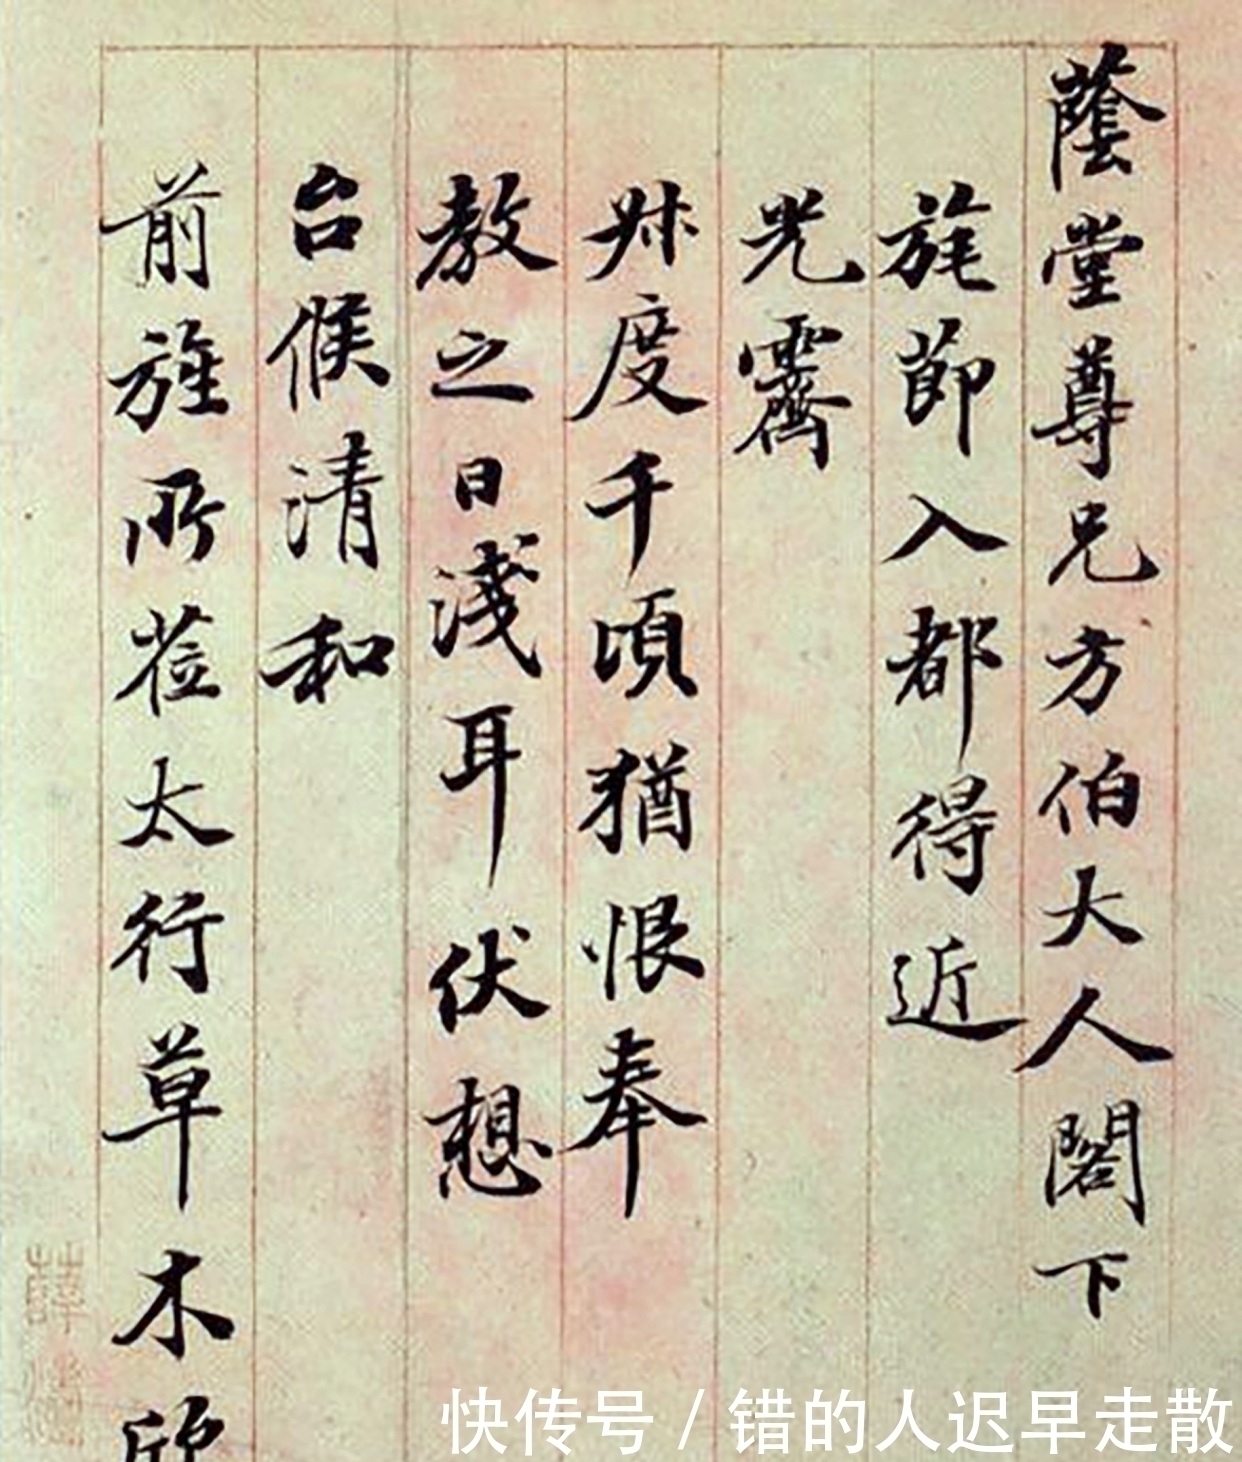 蔭堂尊兄方伯大人閣下
旄節入都得近
光霽
叔度千頃猶恨奉
教之日淺耳伏想
台候清和
前旌所莅太行草木欣
快传号 / 错的人迟早走散